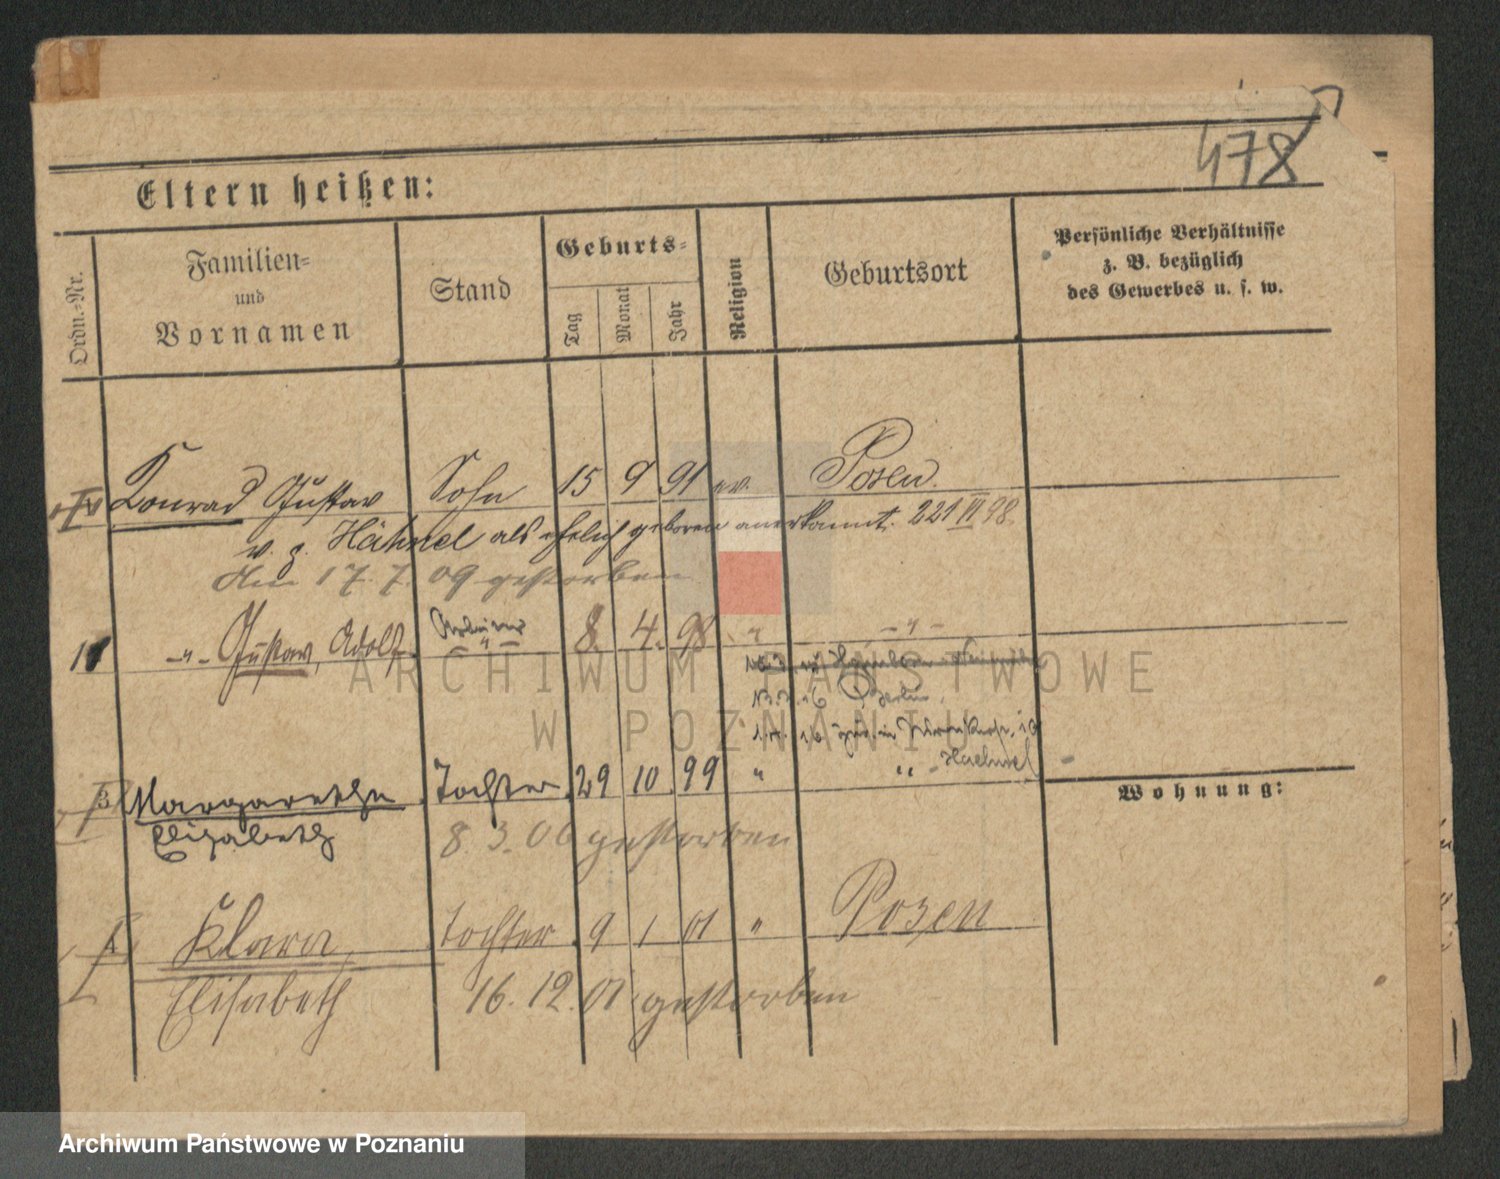 478
Eltern heißen:
Ordn.-Nr.
Familien-
und
Vornamen
Stand
Geburts-
Tag
Monat
Jahr
Religion
Geburtsort
Persönliche Verhältnisse
z. B. bezüglich
des Gewerbes u. s. w.
Konrad Gustav Sohn 15 9 91 ev. Posen.
v. g. Hähnel als ehelich geboren anerkannt. 98.
Am 17. 7. 09 gestorben
-"- Gustav, Adolf Arbeiter -"- 8. 4. 98 " -"-
Berlin
Haehnel
3 Margarethe Tochter 29 10 99 " "
Elisabeth
8. 3. 06 gestorben
Wohnung:
Klara, Tochter 9 1 01 " Posen
Elisabeth
16. 12. 01 gestorben
ARCHIWUM PAŃSTWOWE
W POZNANIU
Archiwum Państwowe w Poznaniu